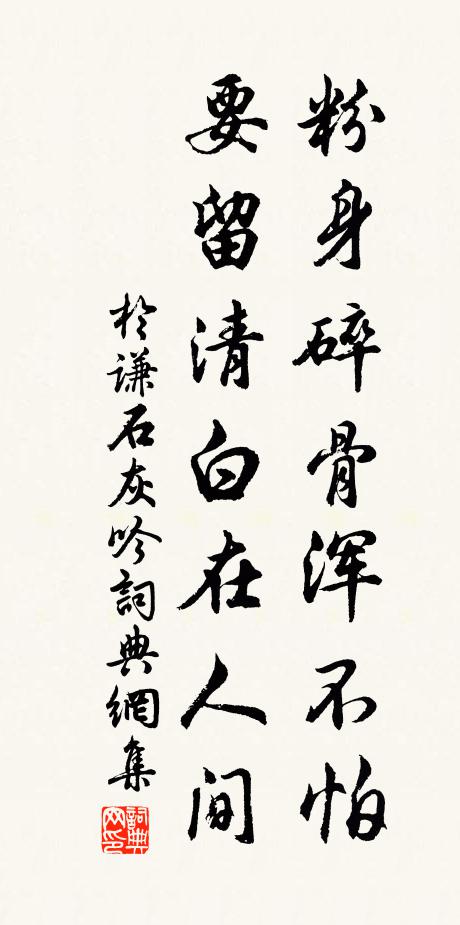 粉身碎骨浑不怕
要留清白在人间
於谦石灰吟詞典網集
詞典网印